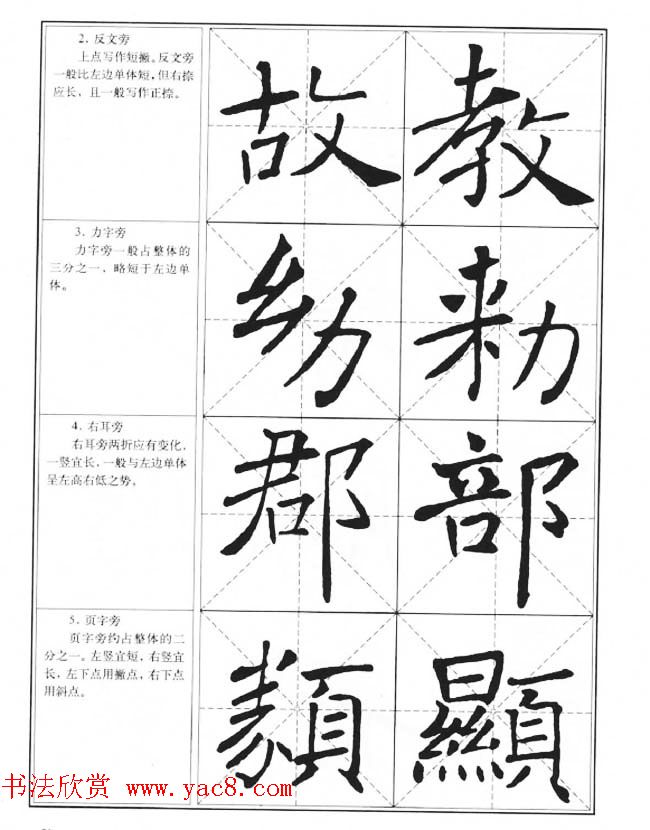 2. 反文旁
上点写作短撇。反文旁
一般比左边单体短,但右捺
应长,且一般写作正捺。
故 教
3. 力字旁
力字旁一般占整体的
三分之一、略短于左边单
体。
幼 勑
4. 右耳旁
右耳旁两折应有变化,
一竖宜长,一般与左边单体
呈左高右低之势。
郡 部
5. 页字旁
页字旁约占整体的二
分之一。左竖宜短,右竖宜
长,左下点用撇点,右下点
用斜点。
顯
书法欣赏 www.yac8.com